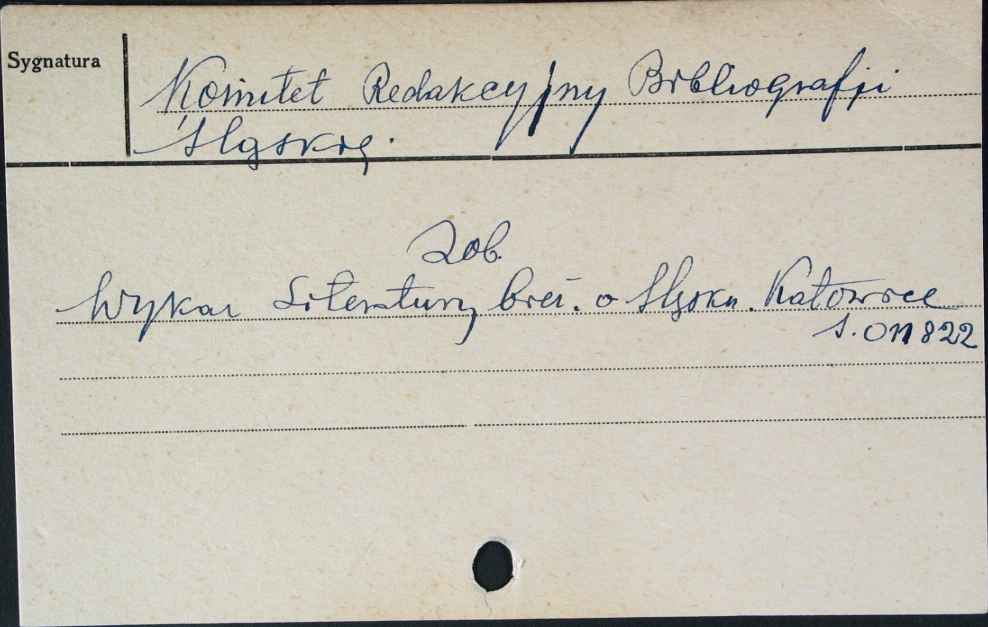 Sygnatura
Komitet Redakcyjny Bibliografji
Śląskiej.
Zob.
Wykaz Literatury bież. o Śląsku. Katowice
S. 011822